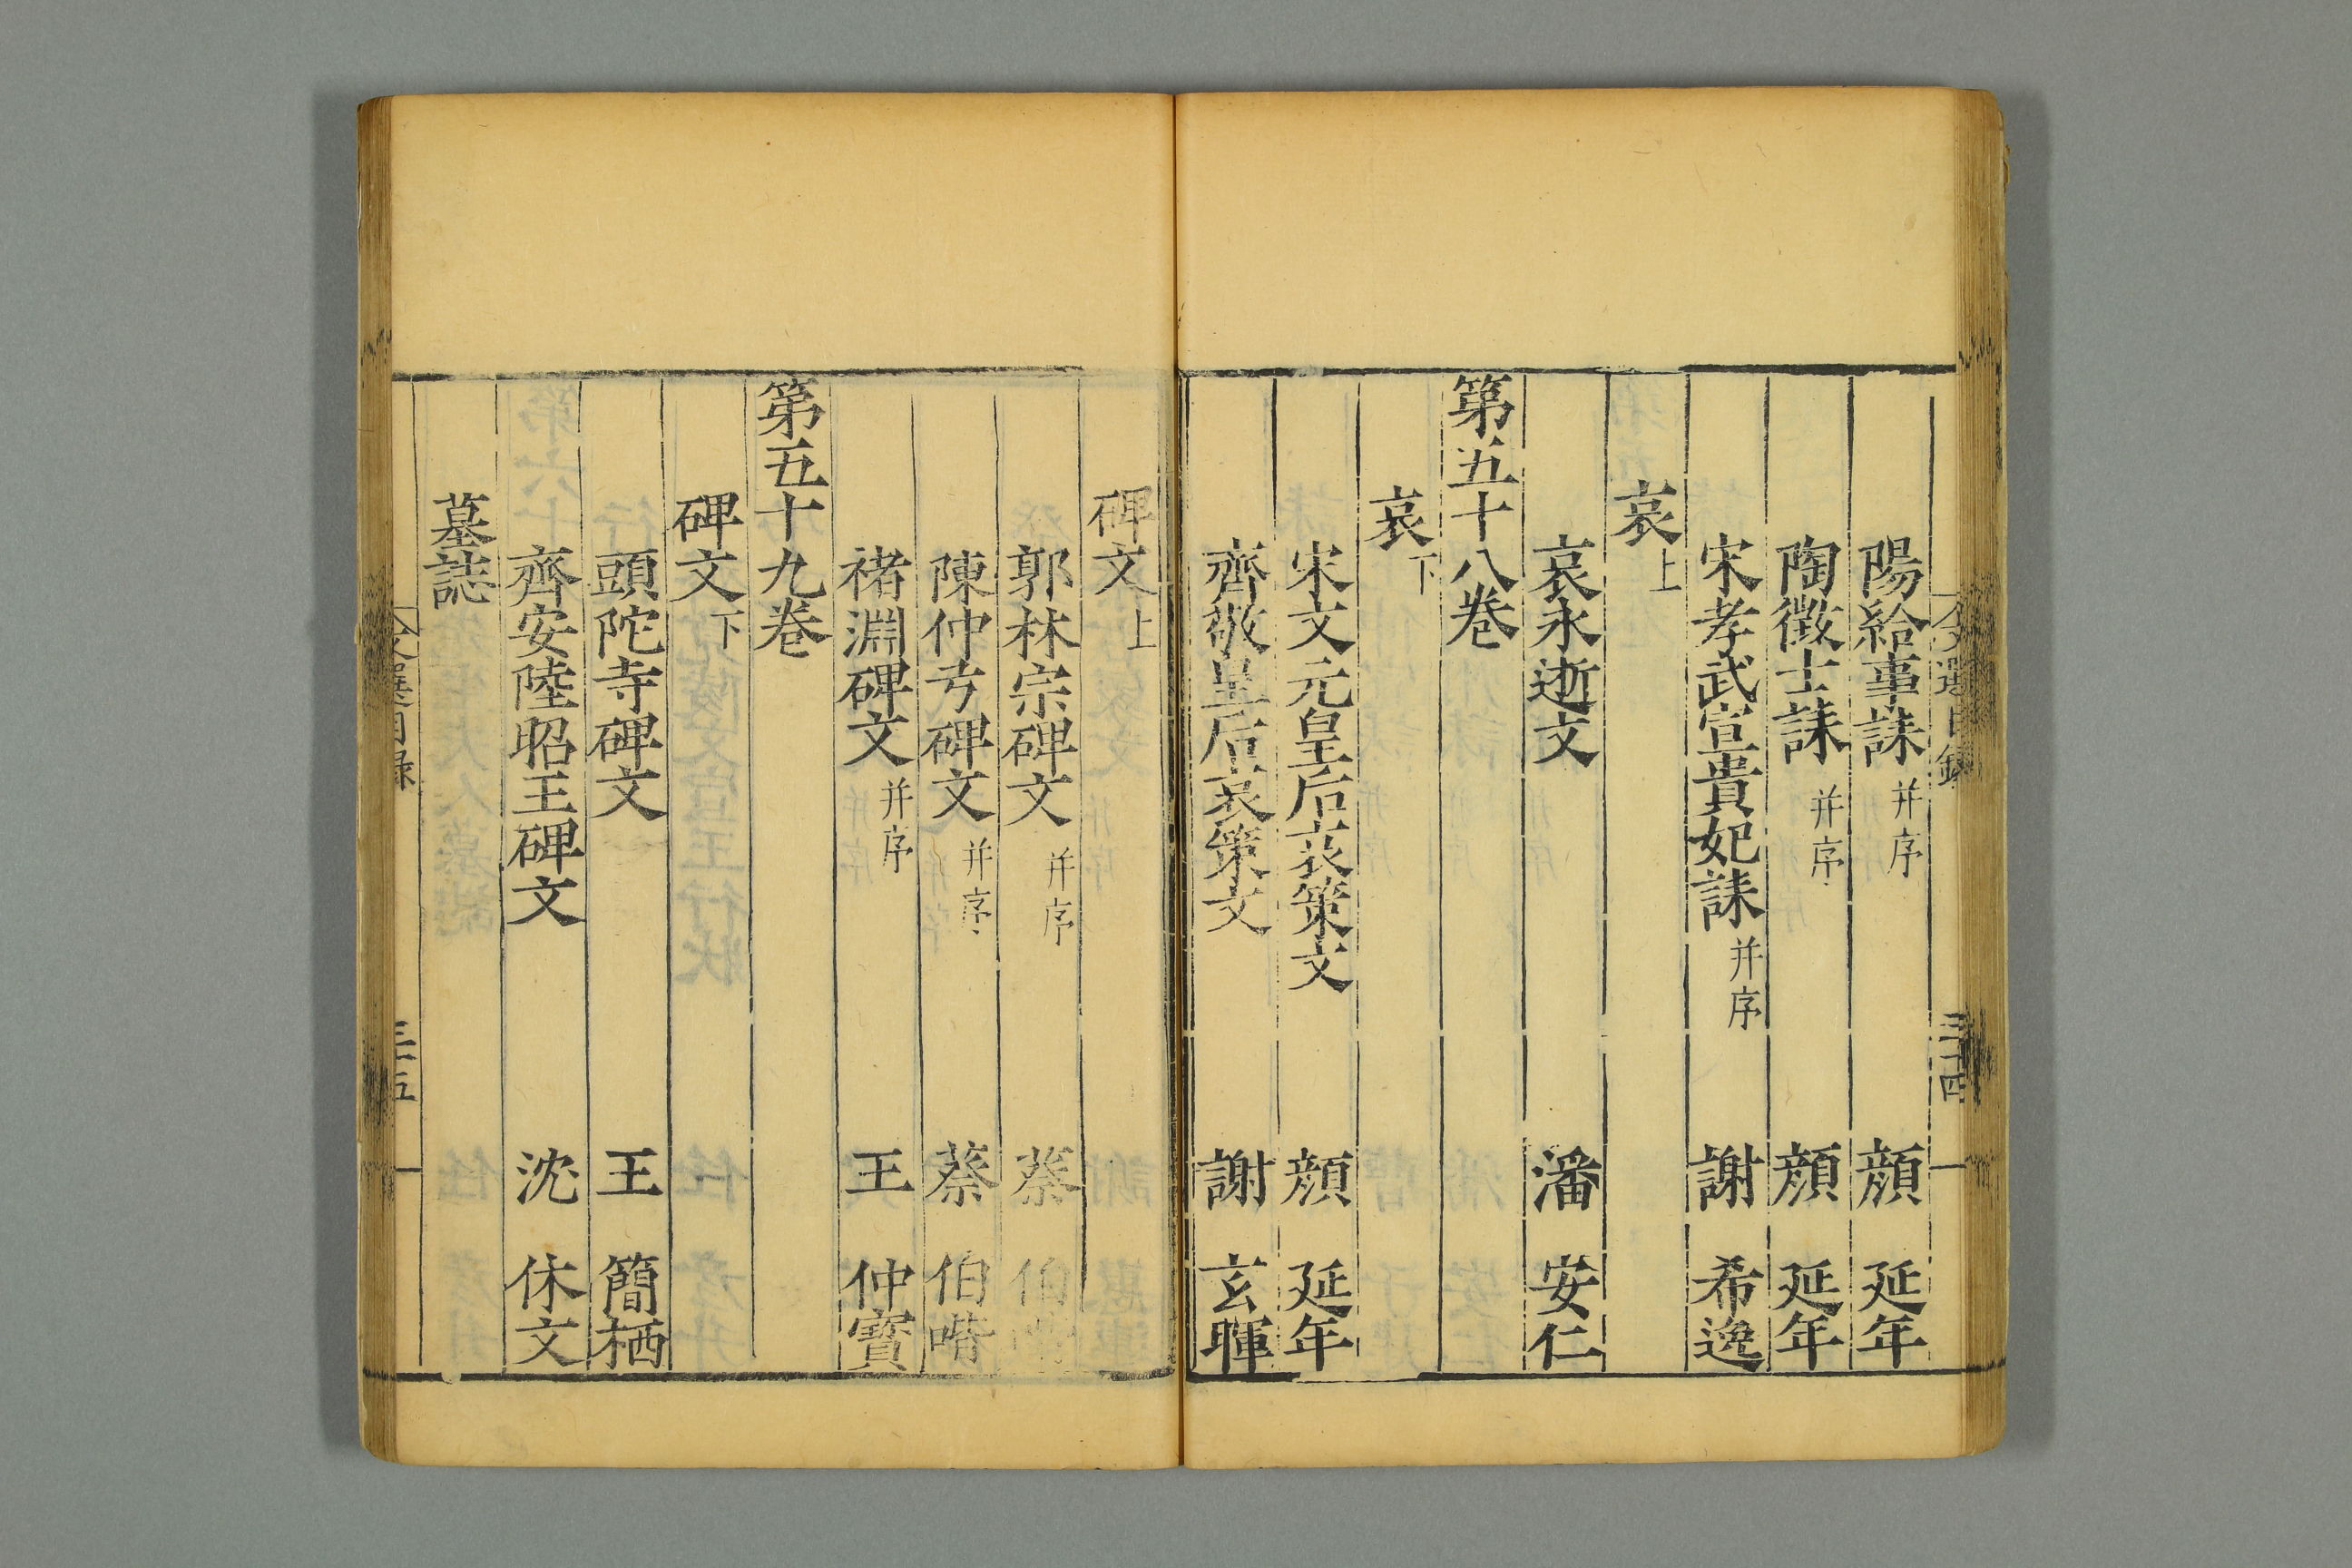 陽給事誄 并序 顔 延年
陶徵士誄 并序 顔 延年
宋孝武宣貴妃誄 并序 謝 希逸
哀上
哀永逝文 潘 安仁
第五十八卷
哀下
宋文元皇后哀策文 顔 延年
齊敬皇后哀策文 謝 玄暉
碑文上
郭林宗碑文 并序 蔡 伯
陳仲弓碑文 并序 蔡 伯喈
褚淵碑文 并序 王 仲寶
第五十九卷
碑文下
頭陀寺碑文 王 簡栖
齊安陸昭王碑文 沈 休文
墓誌
文選目録
三十四
文選目録
三十五